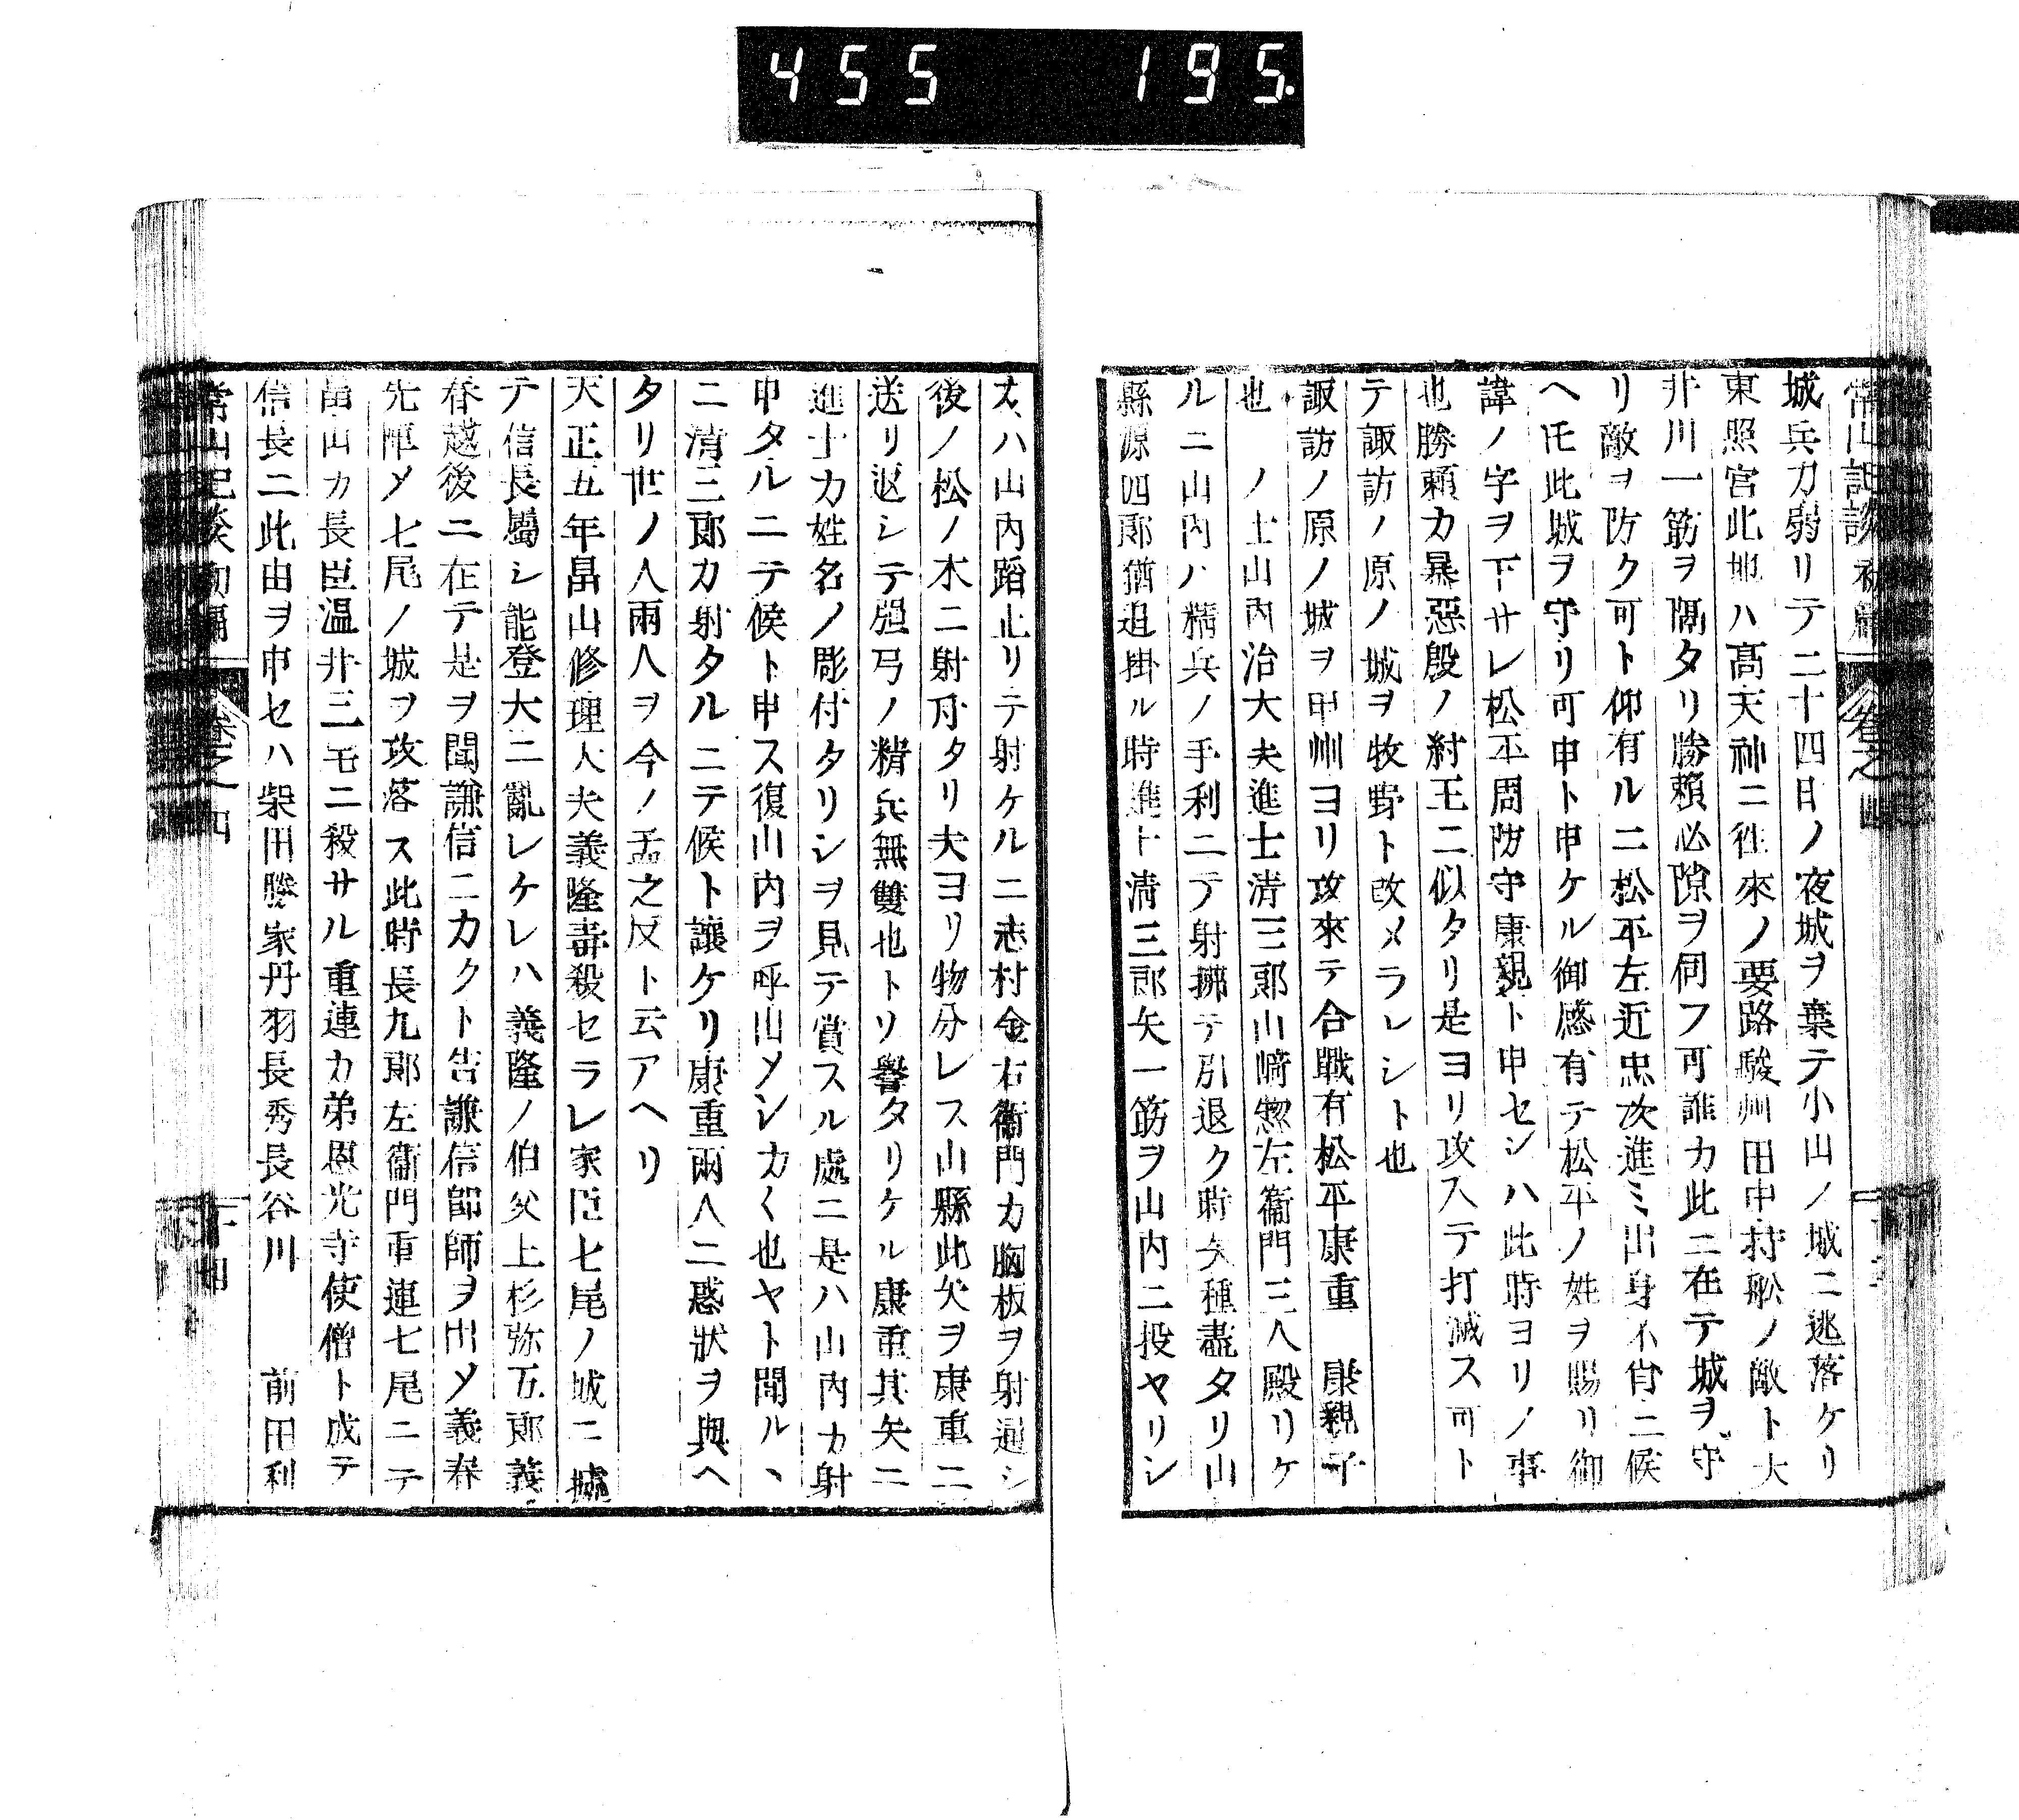 455 195.
常山記談初編 卷之四
城兵力弱リテ二十四日ノ夜城ヲ棄テ小山ノ城ニ逃落ケリ
東照宮此地ハ高天神ニ徃來ノ要路駿州田中持舩ノ敵ト大
井川一筋ヲ隔タリ勝賴必隙ヲ伺フ可誰カ此ニ在テ城ヲ守
リ敵ヲ防ク可ト仰有ルニ松平左近忠次進ミ出身不肖ニ候
ヘ𪜈此城ヲ守リ可申ト申ケル御感有テ松平ノ姓ヲ賜リ御
諱ノ字ヲ下サレ松平周防守康親ト申セシハ此時ヨリノ事
也勝賴カ暴惡殷ノ紂王ニ似タリ是ヨリ攻入テ打滅ス可ト
テ諏訪ノ原ノ城ヲ牧野ト改メラレシト也
諏訪ノ原ノ城ヲ甲州ヨリ攻來テ合戰有松平康重 康親子
也 ノ士山内治大夫進士淸三郎山﨑惣左衞門三人殿リケ
ルニ山内ハ精兵ノ手利ニテ射拂テ引退ク時矢種盡タリ山
縣源四郎猶追掛ル時進士淸三郎矢一筋ヲ山内ニ投ヤリシ
カハ山内踏止リテ射ケルニ志村金右衞門カ胸板ヲ射通シ
後ノ松ノ木ニ射付タリ夫ヨリ物分レス山縣此矢ヲ康重ニ
送リ返シテ强弓ノ精兵無雙也トソ譽タリケル康重其矢ニ
進士カ姓名ノ彫付タリシヲ見テ賞スル處ニ是ハ山内カ射
申タルニテ候ト申ス復山内ヲ呼出メシカ〱也ヤト聞ル丶
ニ淸三郎カ射タルニテ候ト讓ケリ康重兩人ニ感狀ヲ與ヘ
タリ世ノ人兩人ヲ今ノ孟之反ト云アヘリ
天正五年畠山修理大夫義隆毒殺セラレ家臣七尾ノ城ニ據
テ信長屬シ能登大ニ亂レケレハ義隆ノ伯父上杉弥五郎義
春越後ニ在テ是ヲ聞謙信ニカクト告謙信卽師ヲ出メ義春
先陣メ七尾ノ城ヲ攻落ス此時長九郎左衞門重連七尾ニテ
畠山カ長臣温井三宅ニ殺サル重連カ弟恩光寺使僧ト成テ
信長ニ此由ヲ申セハ柴田勝家丹羽長秀長谷川 前田利
常山記談初編 卷之四